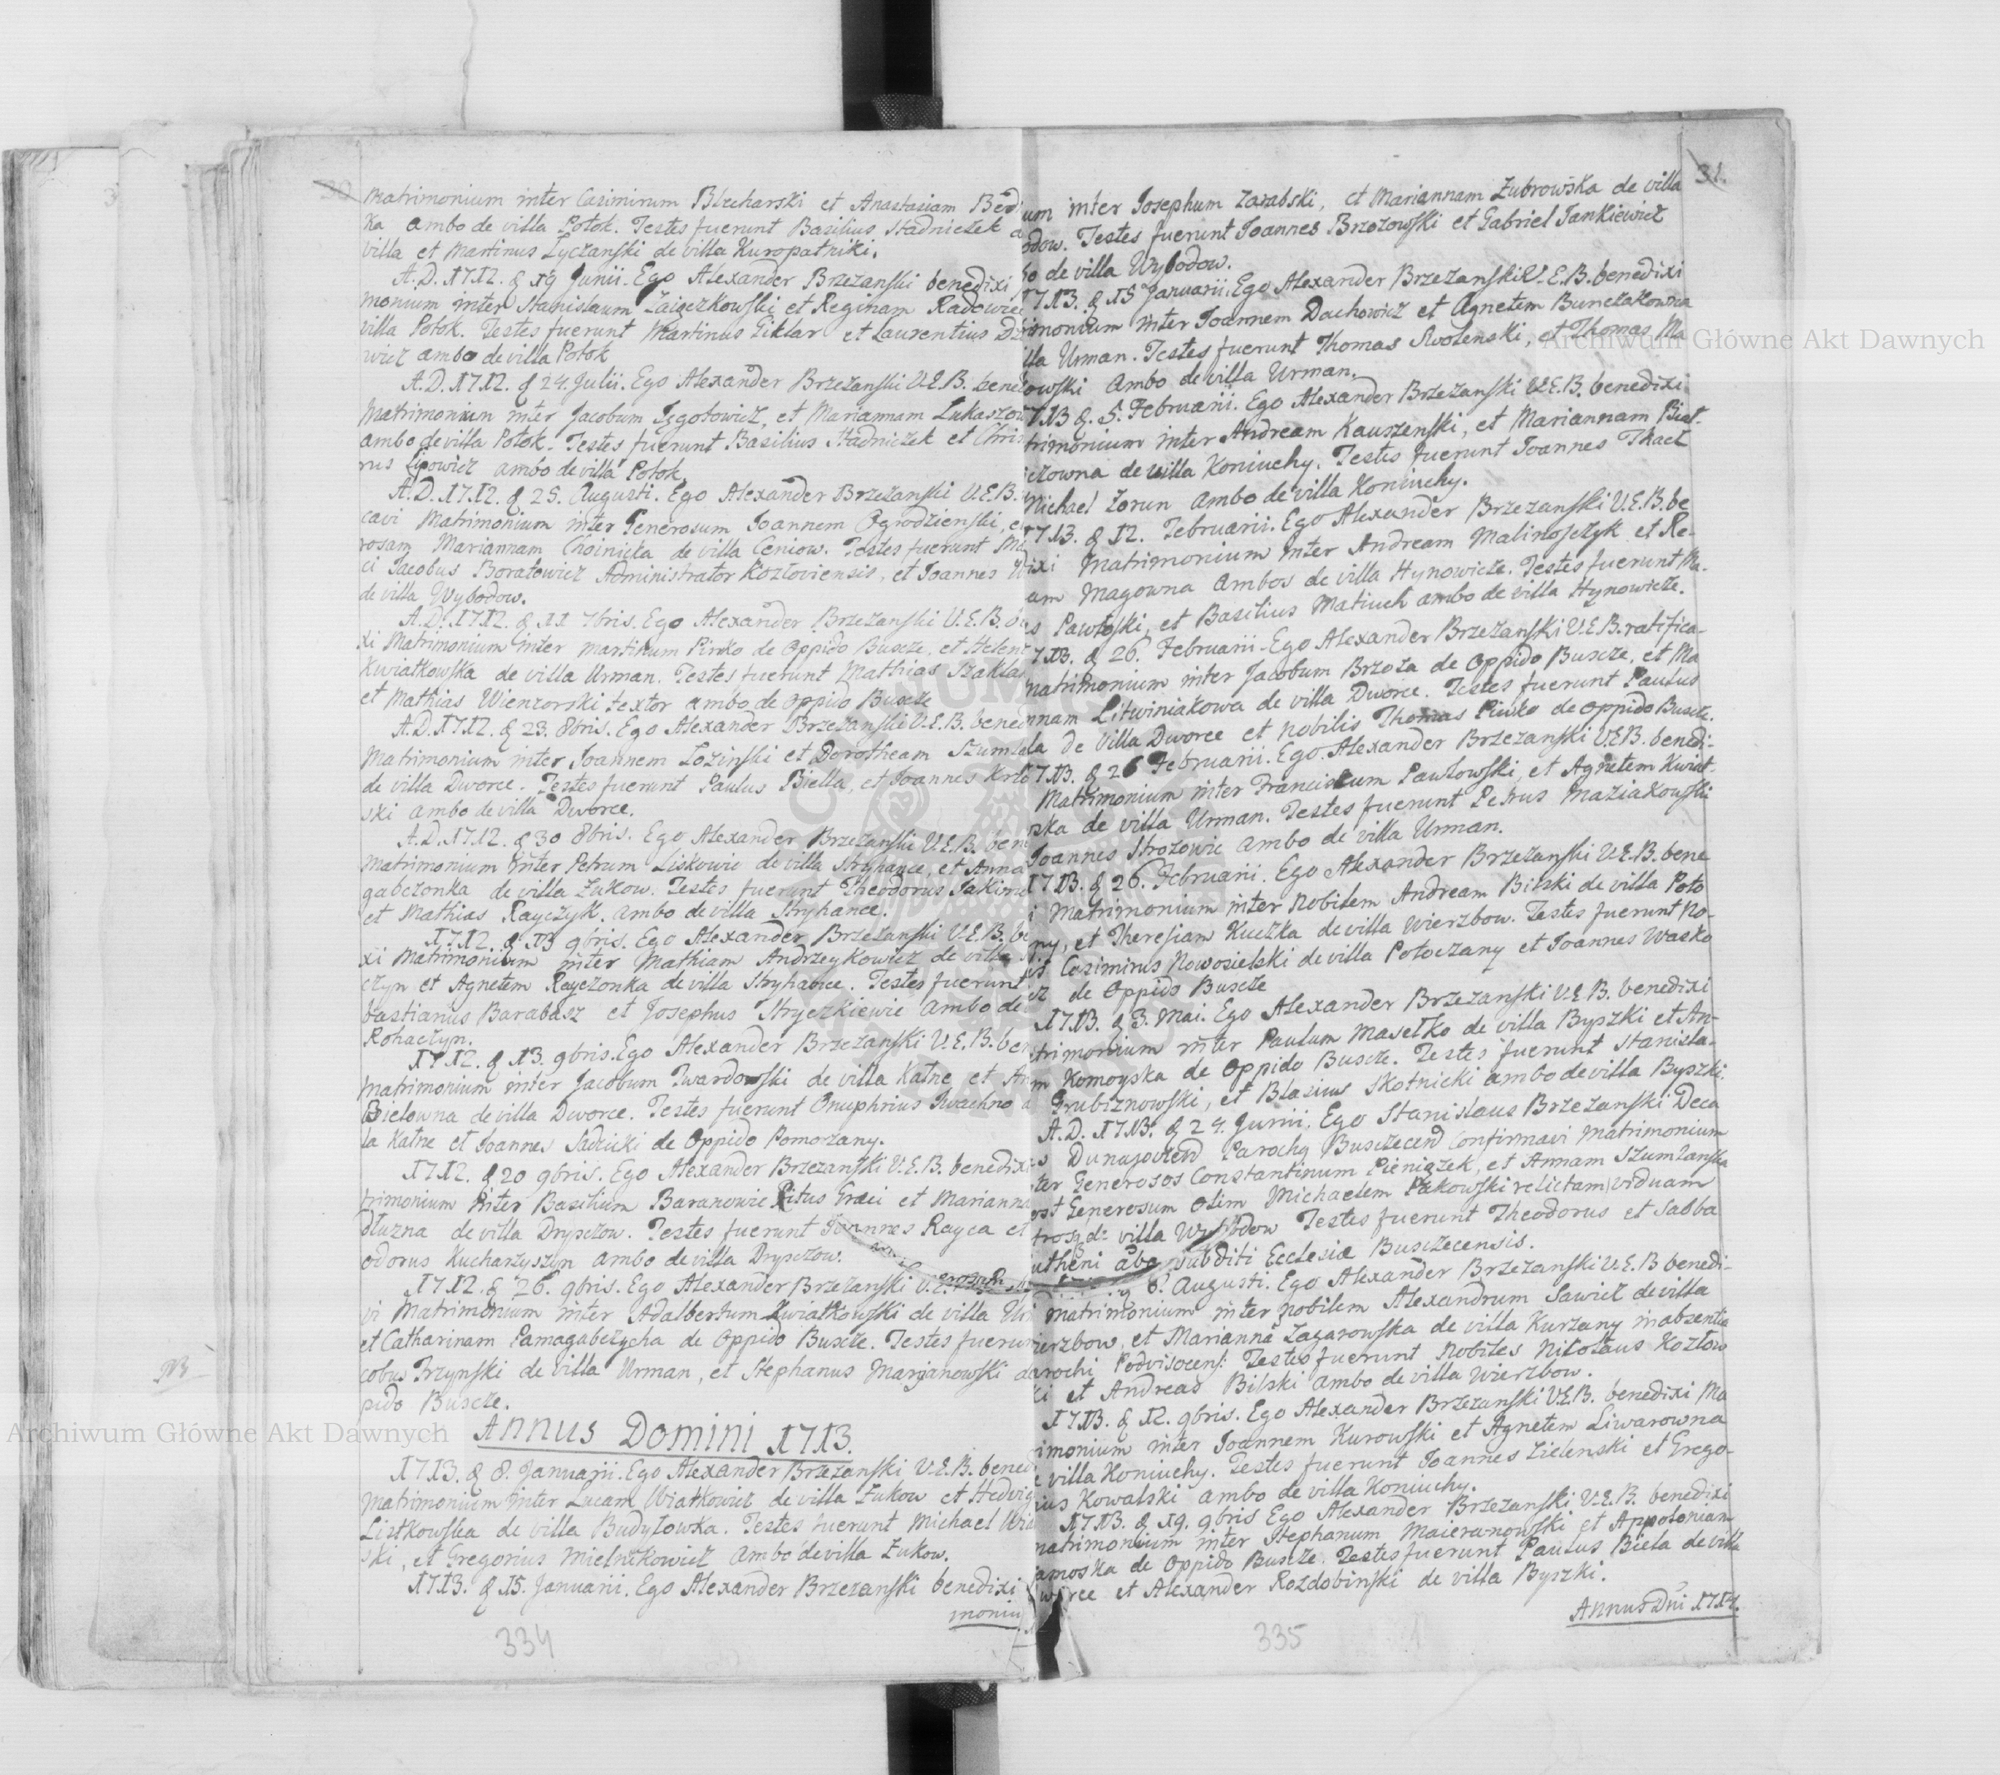 30
Matrimonium inter Casimirum Blecharski et Anastasiam
ka ambo de villa Potok. Testes fuerunt Basilius Stadniczek
villa et Martinus Lyczanski de villa Kuropatniki.
A.D. 1712. d 19 Junii. Ego Alexander Brzezanski benedixi
monium inter Stanislaum Zaiączkowski et Reginam
villa Potok. Testes fuerunt Martinus Ciklar et Laurentius
wicz ambo de villa Potok
A.D. 1712. d 24. Julii. Ego Alexander Brzezanski V.E.B.
Matrimonium inter Jacobum et Mariannam
ambo de villa Potok. Testes fuerunt Basilius Stadniczek et
rus Lipowicz ambo de villa Potok
A.D. 1712. d 25. Augusti. Ego Alexander Brzezanski V.E.B.
cavi Matrimonium inter Generosum Joannem Ogrodzienski,
rosam Mariannam Choinicka de villa Ceniow. Testes fuerunt
ci Jacobus Boratowicz Administrator Kozloviensis, et Joannes
de villa Wybodow.
A.D. 1712. d 11 7bris. Ego Alexander Brzezanski V.E.B.
xi Matrimonium inter Martinum Pinko de Oppido Buscze, et
Kwiatkowska de villa Urman. Testes fuerunt Mathias
et Mathias Wienzorski textor ambo de Oppido Buscze
A.D. 1712. d 23. 8bris. Ego Alexander Brzezanski V.E.B.
Matrimonium inter Joannem Lozinski et Dorotheam
de villa Dworce. Testes fuerunt Paulus Biella, et Joannes
ski ambo de villa Dworce.
A.D. 1712. d 30 8bris. Ego Alexander Brzezanski V.E.B.
Matrimonium inter Petrum Liskowic de villa Stryhance, et Anna
gabczonka de villa Zukow. Testes fuerunt Theodorus
et Mathias Rayczyk. ambo de villa Stryhance.
1712. d 13 9bris. Ego Alexander Brzezanski V.E.B.
xi Matrimonium inter Mathiam Andrzeykowicz de villa
czyn et Agnetem Rayczonka de villa Stryhance. Testes fuerunt
bastianus Barabasz et Josephus Stryczkiewic ambo de
Rohaczyn.
1712. d 13. 9bris. Ego Alexander Brzezanski V.E.B.
Matrimonium inter Jacobum Twardowski de villa Katne et
Bielowna de villa Dworce. Testes fuerunt Onuphrius Iwachno
la Katne et Joannes Sadzicki de Oppido Pomorzany.
1712. d 20 9bris. Ego Alexander Brzezanski V.E.B. benedixi
trimonium inter Basilium Baranowic Ritus Graeci et Marianna
Dluzna de villa Dryszczow. Testes fuerunt Joannes Rayca et
odorus Kucharzyszyn ambo de villa Dryszczow.
1712. d 26. 9bris. Ego Alexander Brzezanski
vi Matrimonium inter Adalbertum Kwiatkowski de villa
et Catharinam Pamagabczycha de Oppido Buscze. Testes fuerunt
cobus Trzynski de villa Urman, et Stephanus Marjanowski
pido Buscze.
Annus Domini 1713.
1713. d 8. Januarii. Ego Alexander Brzezanski V.E.B.
Matrimonium inter Lucam Wiatkowicz de villa Zukow et
Listkowska de villa Budylowka. Testes fuerunt Michael
ski, et Gregorius Mielnikowicz ambo de villa Zukow.
1713. d 15. Januarii. Ego Alexander Brzezanski benedixi
moniu
334
31.
um inter Josephum Zarabski, et Mariannam Zubrowska de villa
odow. Testes fuerunt Joannes Brzozowski et Gabriel Jankiewicz
bo de villa Wybodow.
1713. d 15 Januarii. Ego Alexander Brzezanski V.E.B. benedixi
rimonium inter Joannem Dachowicz et Agnetem Bunczakowna
lla Urman. Testes fuerunt Thomas Swolenski, et Thomas Ma
owski ambo de villa Urman.
1713 d. 5. Februarii. Ego Alexander Brzezanski V.E.B. benedixi
trimonium inter Andream Kauszenski, et Mariannam
czowna de villa Koniuchy. Testes fuerunt Joannes Tkacz
Michael Zorun ambo de villa Koniuchy.
1713. d 12. Februarii. Ego Alexander Brzezanski V.E.B. be
ixi Matrimonium inter Andream Malinosczyk et Re-
am Magowna ambos de villa Hynowicze. Testes fuerunt Ma-
s Pawloski, et Basilius Matiuch ambo de villa Hynowicze.
1713. d 26. Februarii. Ego Alexander Brzezanski V.E.B. ratifica-
matrimonium inter Jacobum Brzoza de Oppido Buscze, et Ma
nnam Litwiniakowa de villa Dworce. Testes fuerunt Paulus
la de villa Dworce et nobilis Thomas Pinko de oppido Buscze.
1713. d 26 Februarii. Ego Alexander Brzezanski V.E.B. benedi-
Matrimonium inter Franciscum Pawlowski, et Agnetem Kwiat-
ska de villa Urman. Testes fuerunt Petrus Maziakowski
Joannes Strozowic ambo de villa Urman.
1713. d 26. Februarii. Ego Alexander Brzezanski V.E.B. bene
i Matrimonium inter Nobilem Andream Bilski de villa Poto
ny, et Theresiam Kuczka de villa Wierzbow. Testes fuerunt No-
Casimirus Nowosielski de villa Potoczany et Joannes Wasko
cz de Oppido Buscze
1713. d 3. Mai. Ego Alexander Brzezanski V.E.B. benedixi
trimonium inter Paulum Maselko de villa Byszki et An-
m Komorska de Oppido Buscze. Testes fuerunt Stanisla-
Grubiznowski, et Blasius Skotnicki ambo de villa Byszki.
A.D. 1713. d 24. Junii. Ego Stanislaus Brzezanski Deca
Parochg Confirmavi Matrimonium
ter Generosos Constantinum Pieniążek, et Annam Szumlanska
ost Generosum olim Michaelem Pakowski relictam viduam
de villa Wybodow Testes fuerunt Theodorus et Sabba
utheni abo subditi Ecclesia Busczecensis.
6. Augusti. Ego Alexander Brzezanski V.E.B benedi-
Matrimonium inter nobilem Alexandrum Sawicz de villa
ierzbow, et Marianna Zagarowska de villa Kurzany in absentia
arochi Podvisocens. Testes fuerunt Nobiles Nicolaus Kozlow
ki et Andreas Bilski ambo de villa Wierzbow.
1713. d 12. 9bris. Ego Alexander Brzezanski V.E.B. benedixi Ma
imonium inter Joannem Kurowski et Agnetem Liwarowna
villa Koniuchy. Testes fuerunt Joannes Zielenski et Grego-
ius Kowalski ambo de villa Koniuchy.
1713. d 19. 9bris Ego Alexander Brzezanski V.E.B. benedixi
matrimonium inter Stephanum Maieranowski et Appoloniam
amoska de Oppido Buscze. Testes fuerunt Paulus Biela de villa
worce et Alexander Rozdobinski de villa Byszki.
Annus Dni 1714.
335
Archiwum Główne Akt Dawnych
Archiwum Główne Akt Dawnych